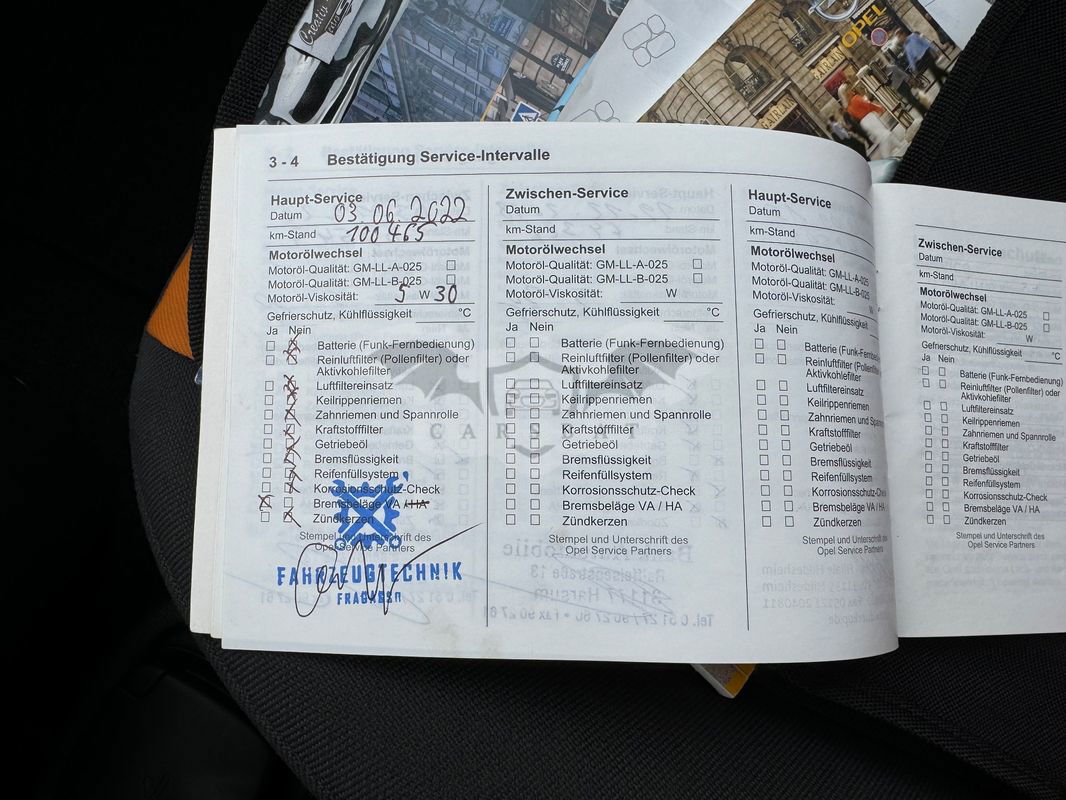 Creativ
OPEL
CAIRLAIN
3 - 4 Bestätigung Service-Intervalle
Haupt-Service
Datum 03.06.2022
km-Stand 100 465
Motorölwechsel
Motoröl-Qualität: GM-LL-A-025
Motoröl-Qualität: GM-LL-B-025
Motoröl-Viskosität: 5 W 30
Gefrierschutz, Kühlflüssigkeit °C
Ja Nein
Batterie (Funk-Fernbedienung)
Reinluftfilter (Pollenfilter) oder
Aktivkohlefilter
Luftfiltereinsatz
Keilrippenriemen
Zahnriemen und Spannrolle
Kraftstofffilter
Getriebeöl
Bremsflüssigkeit
Reifenfüllsystem
Korrosionsschutz-Check
Bremsbeläge VA / HA
Zündkerzen
Stempel und Unterschrift des
Opel Service Partners
FAHRZEUGTECHNIK
Zwischen-Service
Datum
km-Stand
Motorölwechsel
Motoröl-Qualität: GM-LL-A-025
Motoröl-Qualität: GM-LL-B-025
Motoröl-Viskosität: W
Gefrierschutz, Kühlflüssigkeit °C
Ja Nein
Batterie (Funk-Fernbedienung)
Reinluftfilter (Pollenfilter) oder
Aktivkohlefilter
Luftfiltereinsatz
Keilrippenriemen
Zahnriemen und Spannrolle
Kraftstofffilter
Getriebeöl
Bremsflüssigkeit
Reifenfüllsystem
Korrosionsschutz-Check
Bremsbeläge VA / HA
Zündkerzen
Stempel und Unterschrift des
Opel Service Partners
Haupt-Service
Datum
km-Stand
Motorölwechsel
Motoröl-Qualität: GM-LL-A-025
Motoröl-Qualität: GM-LL-B-025
Motoröl-Viskosität: W
Gefrierschutz, Kühlflüssigkeit
Ja Nein
Batterie (Funk-Fernbed
Reinluftfilter (Pollenfilter)
Aktivkohlefilter
Luftfiltereinsatz
Keilrippenriemen
Zahnriemen und Spann
Kraftstofffilter
Getriebeöl
Bremsflüssigkeit
Reifenfüllsystem
Korrosionsschutz-Check
Bremsbeläge VA / HA
Zündkerzen
Stempel und Unterschrift des
Opel Service Partners
Zwischen-Service
Datum
km-Stand
Motorölwechsel
Motoröl-Qualität: GM-LL-A-025
Motoröl-Qualität: GM-LL-B-025
Motoröl-Viskosität: W
Gefrierschutz, Kühlflüssigkeit °C
Ja Nein
Batterie (Funk-Fernbedienung)
Reinluftfilter (Pollenfilter) oder
Aktivkohlefilter
Luftfiltereinsatz
Keilrippenriemen
Zahnriemen und Spannrolle
Kraftstofffilter
Getriebeöl
Bremsflüssigkeit
Reifenfüllsystem
Korrosionsschutz-Check
Bremsbeläge VA / HA
Zündkerzen
Stempel und Unterschrift des
Opel Service Partners